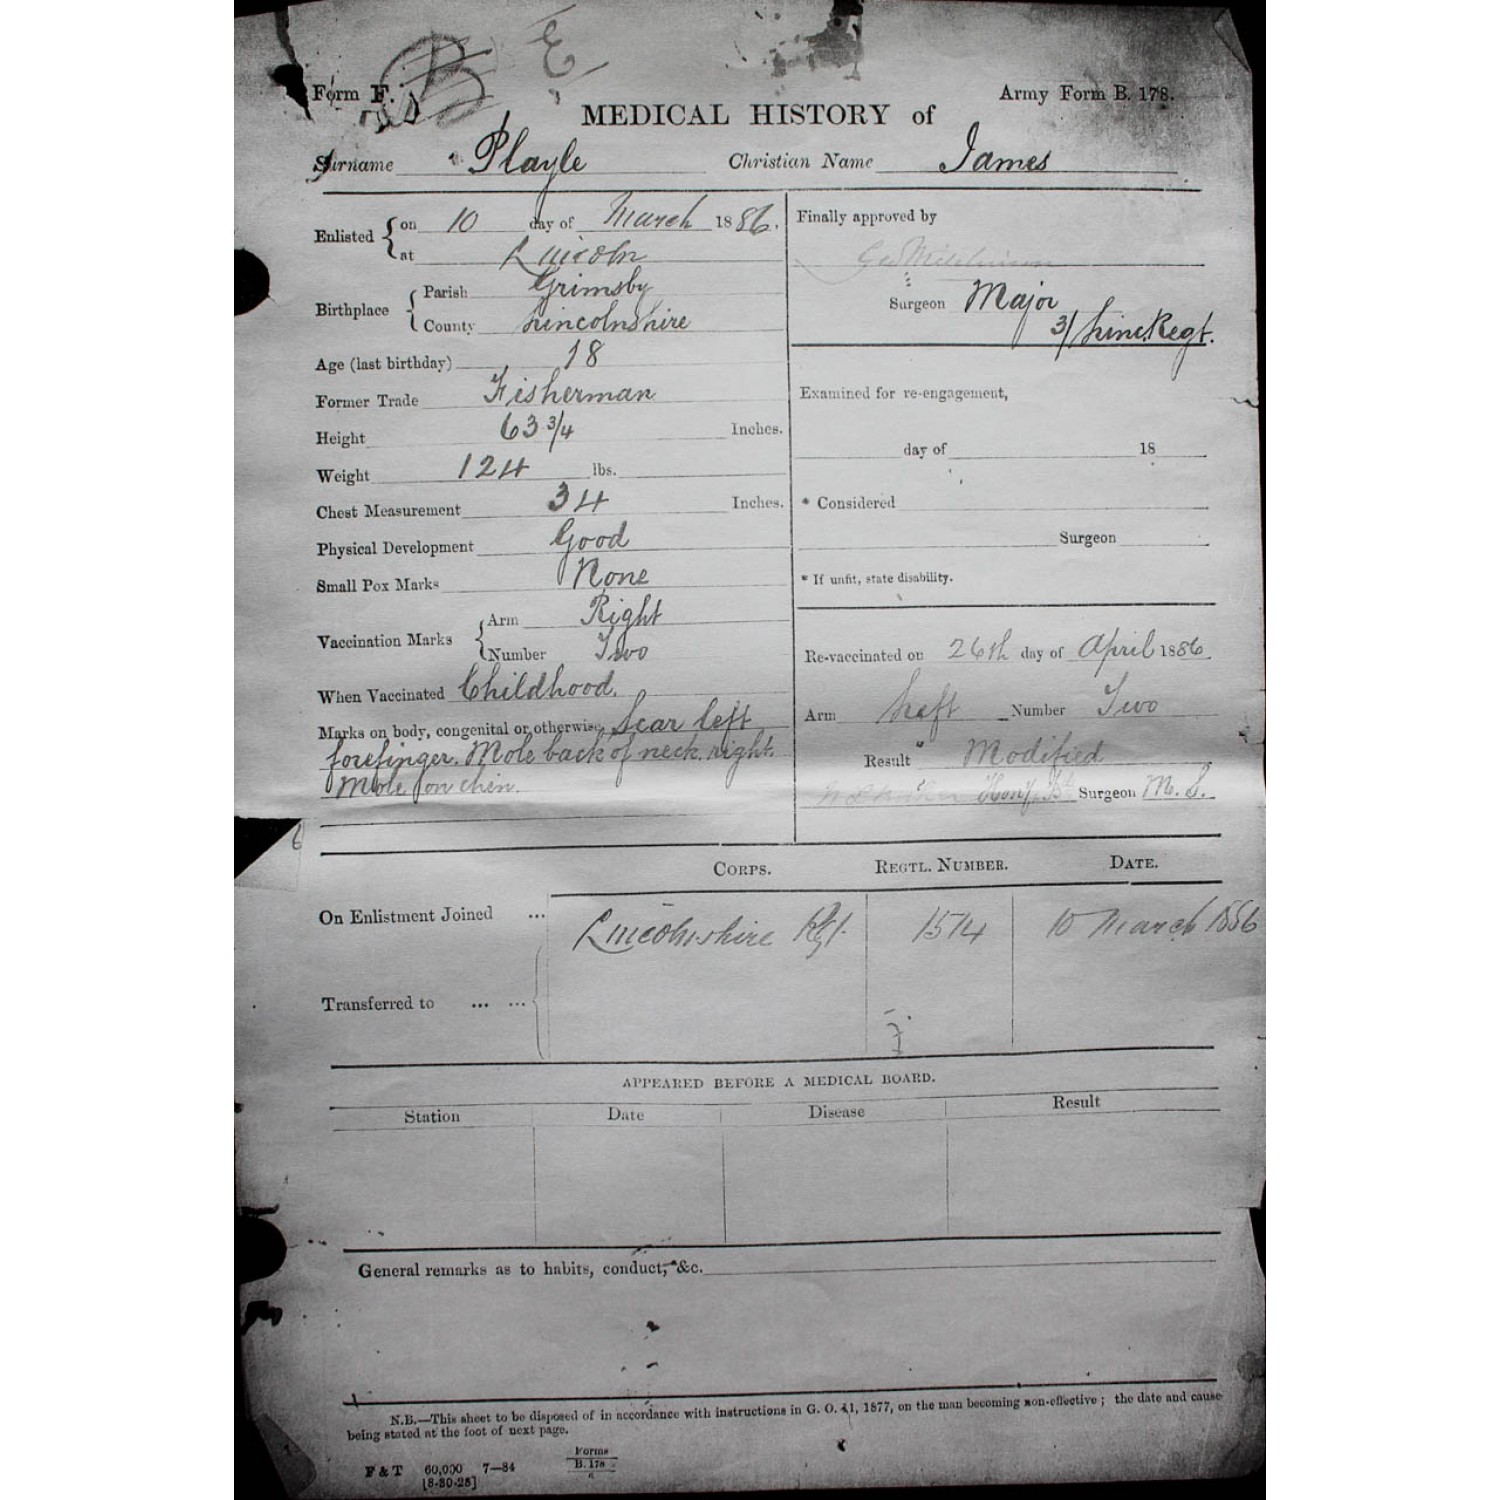 B E
Form F. Army Form B. 178.
MEDICAL HISTORY of
Surname Playle Christian Name James
Enlisted { on 10 day of March 1886.
at Lincoln
Birthplace { Parish Grimsby
County Lincolnshire
Age (last birthday) 18
Former Trade Fisherman
Height 63 3/4 Inches.
Weight 124 lbs.
Chest Measurement 34 Inches.
Physical Development Good
Small Pox Marks None
Vaccination Marks { Arm Right
Number Two
When Vaccinated Childhood.
Marks on body, congenital or otherwise, Scar left
forefinger. Mole back of neck. right.
Mole on chin.
Finally approved by
Surgeon Major
3/Linc. Regt.
Examined for re-engagement,
day of 18
* Considered
Surgeon
* If unfit, state disability.
Re-vaccinated on 26th day of April 1886
Arm Left Number Two
Result Modified
Surgeon M. S.
6
CORPS. REGTL. NUMBER. DATE.
On Enlistment Joined ... Lincolnshire Rgt. 1574 10 March 1886
Transferred to ... ...
APPEARED BEFORE A MEDICAL BOARD.
Station Date Disease Result
General remarks as to habits, conduct, &c.
N.B.—This sheet to be disposed of in accordance with instructions in G. O. 41, 1877, on the man becoming non-effective ; the date and cause
being stated at the foot of next page.
F & T 60,000 7—84 Forms
[8-80-28] B. 178